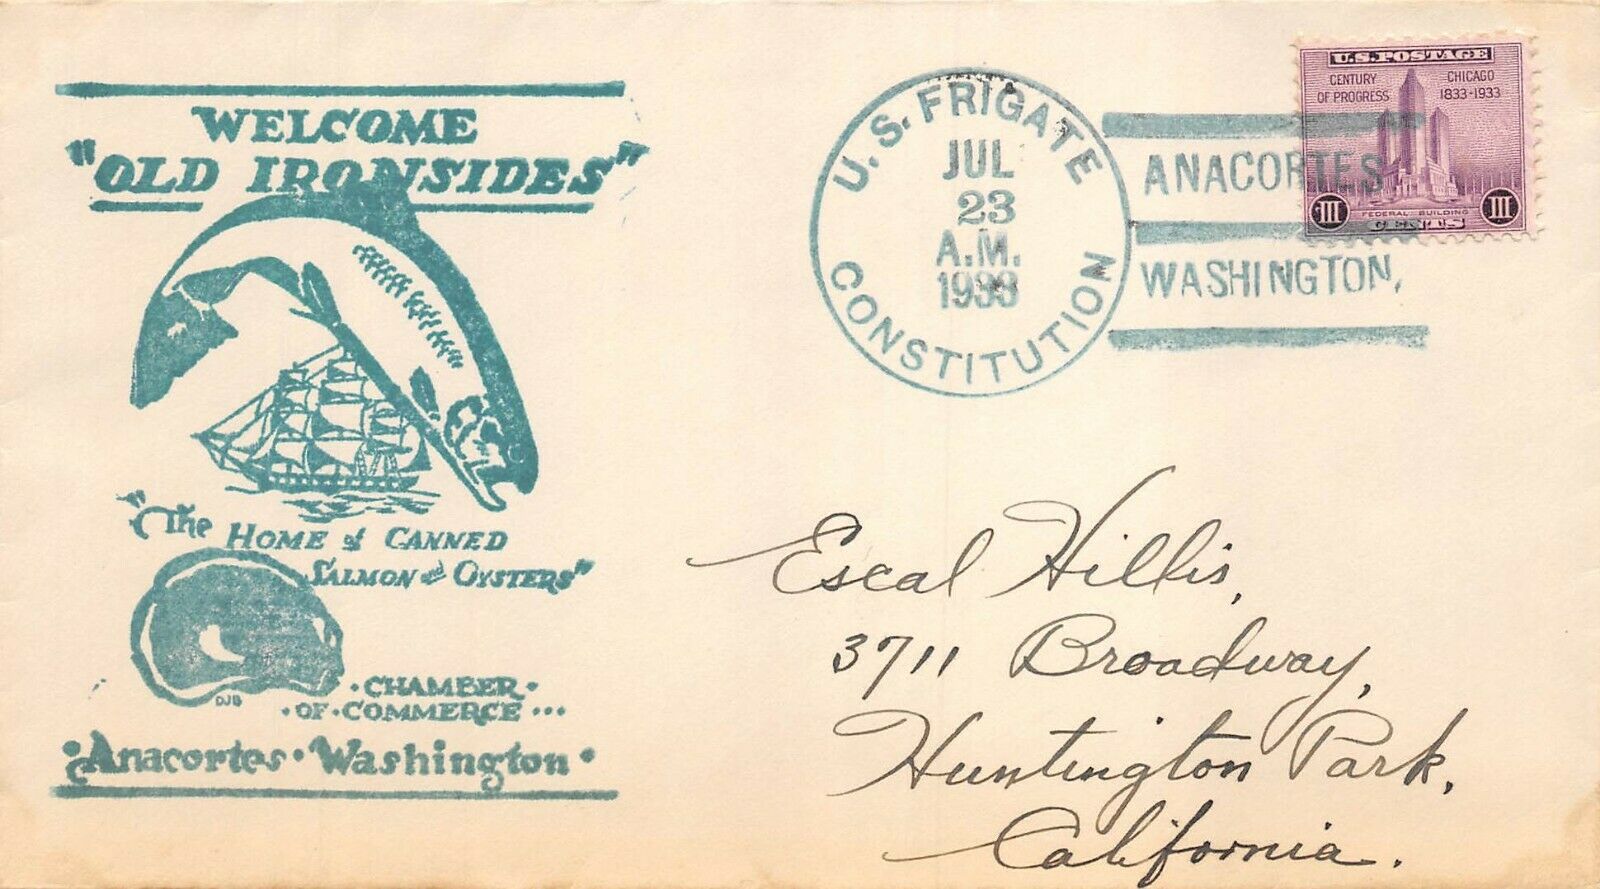 WELCOME
"OLD IRONSIDES"
"The HOME of CANNED
SALMON and OYSTERS"
DJB
·CHAMBER·
·OF·COMMERCE...
Anacortes·Washington·
U.S. FRIGATE
JUL
23
A.M.
1933
CONSTITUTION
ANACORTES
WASHINGTON,
U.S. POSTAGE
CENTURY
OF PROGRESS
CHICAGO
1833-1933
FEDERAL BUILDING
III CENTS III
Escal Hillis,
3711 Broadway,
Huntington Park,
California.